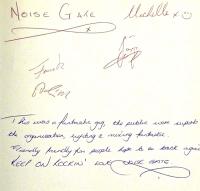 NOISE GATE
Michelle x
This was a fantastic gig, the public were superb
the organisation, lighting & mixing fantastic.
Friendly friendly for people hope to be back again
KEEP ON ROCKIN' LOVE NOISE GATE.